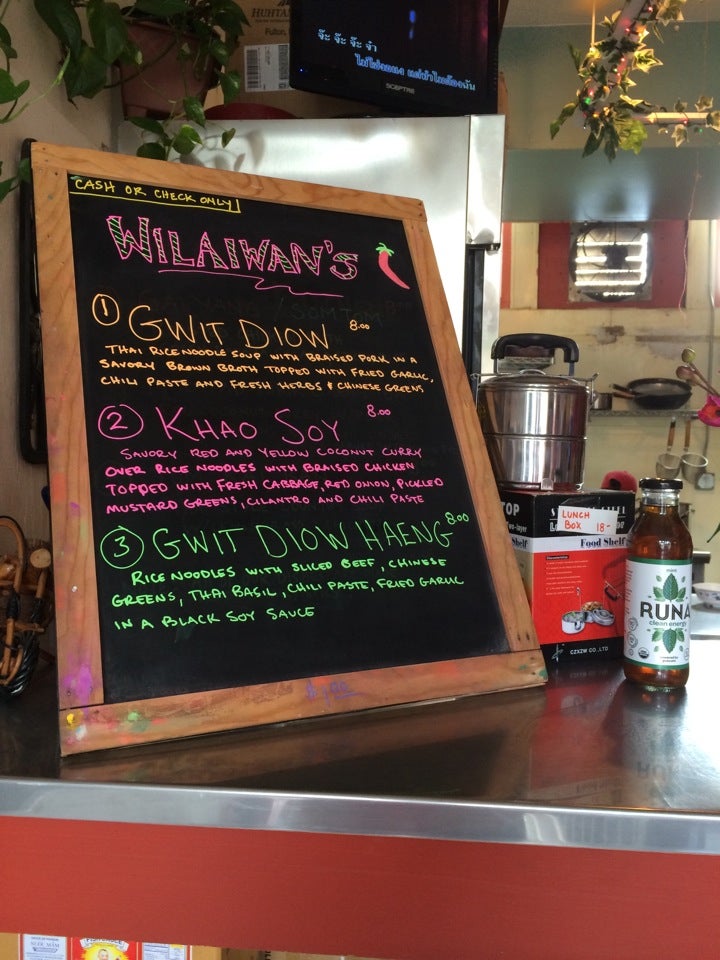 HUHTAM
Fulton,
จ๊ะ จ๊ะ จ๊ะ จ๋า
SCEPTRE
CASH OR CHECK ONLY
WILAIWAN'S
1 GWIT DIOW 8.00
THAI RICE NOODLE SOUP WITH BRAISED PORK IN A
SAVORY BROWN BROTH TOPPED WITH FRIED GARLIC,
CHILI PASTE AND FRESH HERBS & CHINESE GREENS
2 KHAO SOY 8.00
SAVORY RED AND YELLOW COCONUT CURRY
OVER RICE NOODLES WITH BRAISED CHICKEN
TOPPED WITH FRESH CABBAGE, RED ONION, PICKLED
MUSTARD GREENS, CILANTRO AND CHILI PASTE
3 GWIT DIOW HAENG 8.00
RICE NOODLES WITH SLICED BEEF, CHINESE
GREENS, THAI BASIL, CHILI PASTE, FRIED GARLIC
IN A BLACK SOY SAUCE
TOP
LUNCH
BOX 18-
Food Shelf
CZXZW CO.,LTD
RUNA
clean energy